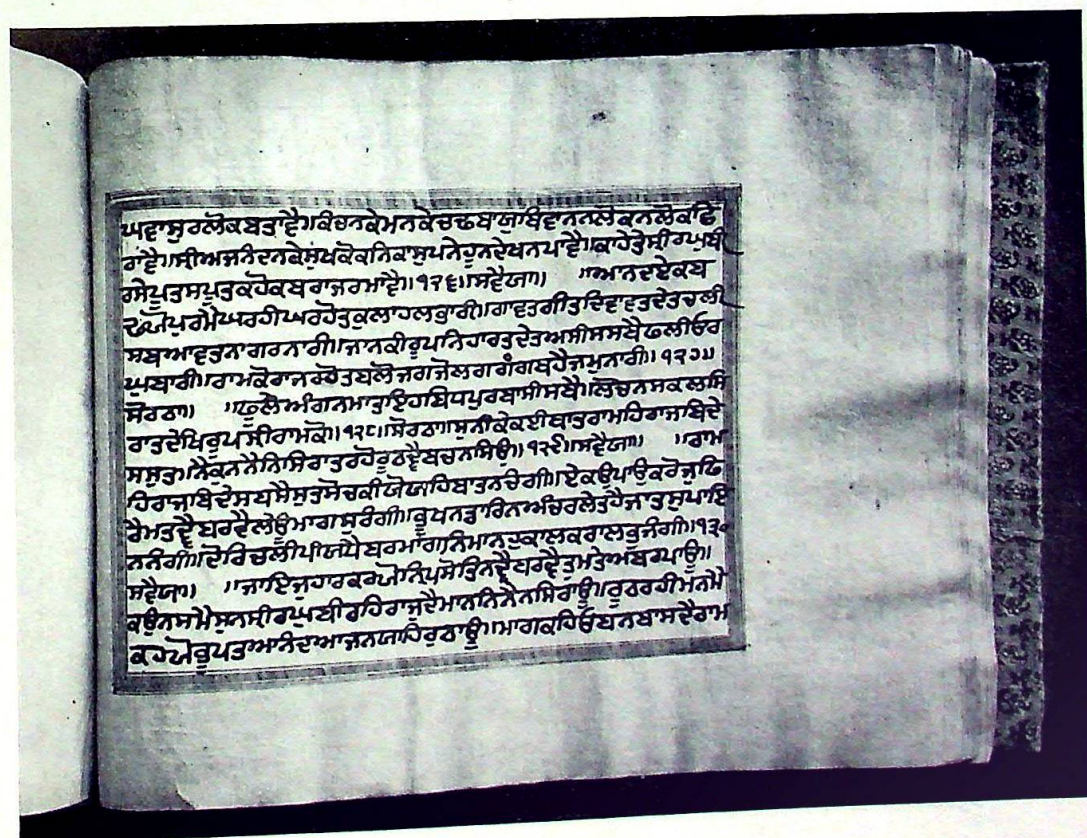 ਘਵਾਸੁਰਲੋਕਬਤਾਵੈ॥ਕੰਚਨਕੇਮਨਕੇਚਢਬਯਾਬਿਵਾਨਨਲੋਕਨਲੋਕਫਿ
ਰਾਵੈ॥ਸੀਅਜਨੰਦਨਕੇਸੁਖਕੋਕਨਿਕਾਸੁਪਨੇਹੂਨਦੇਖਨਪਾਵੈ॥ਕਾਹੇਤੇਸੀਰਘੁਬੀ
ਰਸੇਪੂਤਸਪੂਤਕਹੋਕਬਰਾਜਰਮਾਵੈ॥੧੨੬॥ਸਵੈਯਾ॥ ॥ਆਨਦਏਕਬ
ਢਯੋਪੁਰਮੋਘਰਹੀਘਰਹੋਤਕੁਲਾਹਲਭਾਰੀ॥ਗਾਵਤਗੀਤਦਿਵਾਵਤਦੇਤਚਲੀ
ਸਬਆਵਤਨਾਗਰਨਾਰੀ॥ਜਾਨਕੀਰੂਪਨਿਹਾਰਤਦੇਤਅਸੀਸਸਬੈਢਲੀਓਰ
ਘੁਬਾਰੀ॥ਰਾਮਕੋਰਾਜਹੋਤਬਲੋਜਗਜੋਲਗਗੰਗਬਹੈਜਮੁਨਾਰੀ॥੧੨੭॥
ਸੋਰਠਾ॥ ॥ਫੂਲੋਅੰਗਨਮਾਤਇਹਬਿਧਪੁਰਬਾਸੀਸਬੈ॥ਲੋਚਨਸਕਲਸਿ
ਰਾਤਦੇਖਿਰੂਪਸੀਰਾਮਕੋ॥੧੨੮॥ਸੋਰਠਾ॥ਸੁਨੀਕੇਕਈਬਾਤਰਾਮਹਿਰਾਜਾਬਿਦੇ
ਸਸੁਤ॥ਨੈਕੁਨਨੈਨਿਸਿਰਾਤਰਹੋਰੂਠਦ੍ਵੈਬਚਨਸਿਉ॥੧੨੯॥ਸਵੈਯਾ॥ ॥ਰਾਮ
ਹਿਰਾਜਾਬਿਦੇਸਬਸੈਸੁਤਸੋਚਕੀਯੋਯਾਹਿਬਾਤਨਚੰਗੀ॥ਏਕਉਪਾਉਕਰੋਜੁਫਿ
ਰੈਮਤਦ੍ਵੈਬਰਵੈਲੇਊਮਾਗਸੁਰੰਗੀ॥ਭੂਖਨਡਾਰਿਨਅੰਚਰਲੇਤਹੈਜਾਤਸੁਪਾਇ
ਨਨੰਗੀ॥ਦੋਰਿਚਲੀਪੀਯਪੈਬਰਮਾਂਗਨਿਮਾਨਹੁਕਾਲਕਰਾਲਭੁਜੰਗੀ॥੧੩੦
ਸਵੈਯਾ॥ ॥ਜਾਇਜੁਹਾਰਕਰਯੋਨ੍ਰਿਪਸੋਤਿਨਦੈਬਰਦੈਤੁਮਤੇਅਬਪਾਊ॥
ਕਉਨਸਮੈਸੁਨਸੀਰਘੁਬੀਰਹਿਰਾਜੁਦੈਮਾਨਨਿਨੈਨਸਿਰਾਊ॥ਰੂਠਰਹੀਮਨਮੈ
ਕਹਯੋਭੂਪਤਆਨੰਦਆਜਨਯਾਹਿਰੁਠਾਊ॥ਮਾਗਕਹਿਓਬਨਬਾਸਦੈਰਾਮ